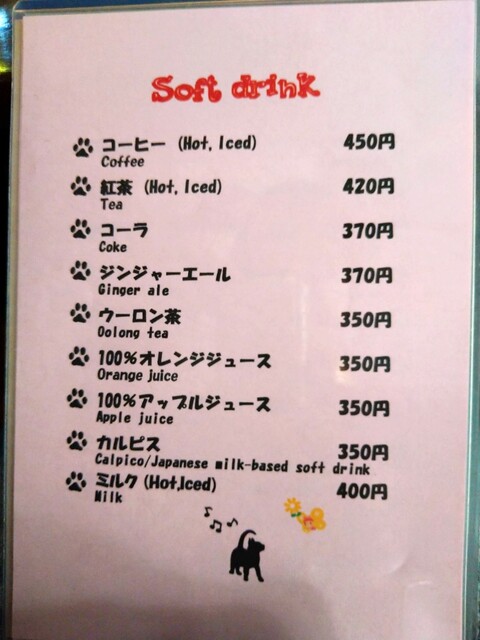 Soft drink
コーヒー (Hot, Iced) 450円
Coffee
紅茶 (Hot, Iced) 420円
Tea
コーラ 370円
Coke
ジンジャーエール 370円
Ginger ale
ウーロン茶 350円
Oolong tea
100%オレンジジュース 350円
Orange juice
100%アップルジュース 350円
Apple juice
カルピス 350円
Calpico/Japanese milk-based soft drink
ミルク (Hot,Iced) 400円
Milk